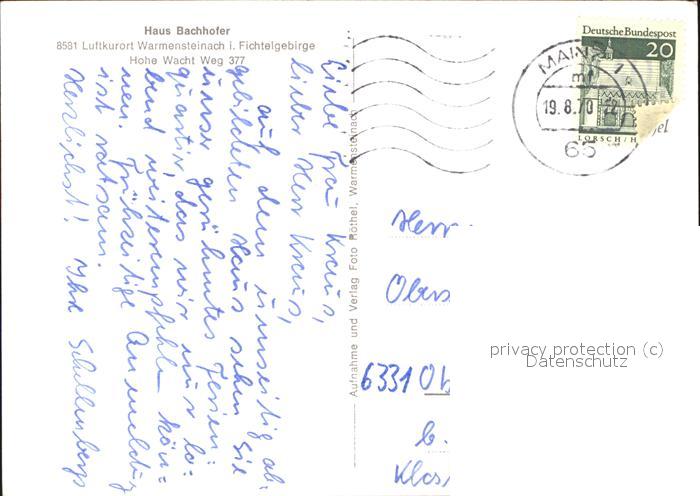 Haus Bachhofer
8581 Luftkurort Warmensteinach i. Fichtelgebirge
Hohe Wacht Weg 377
Liebe Frau Kraus,
lieber Herr Kraus,
auf dem umseitig ab-
gebildeten Haus sehen Sie
unser gerühmtes Ferien=
quartier, das wir nur lo=
bend weiterempfehlen kön=
nen. Frühzeitige Anmeldung
ist ratsam.
Herzlichst! Ihre Schullenbergs
Aufnahme und Verlag Foto Rothel, Warmensteinach
Deutsche Bundespost
20
LORSCH/H
MAINZ 1
19.8.70
65
Herr
Obers
6331 Ob
b.
Klos
privacy protection (c)
Datenschutz